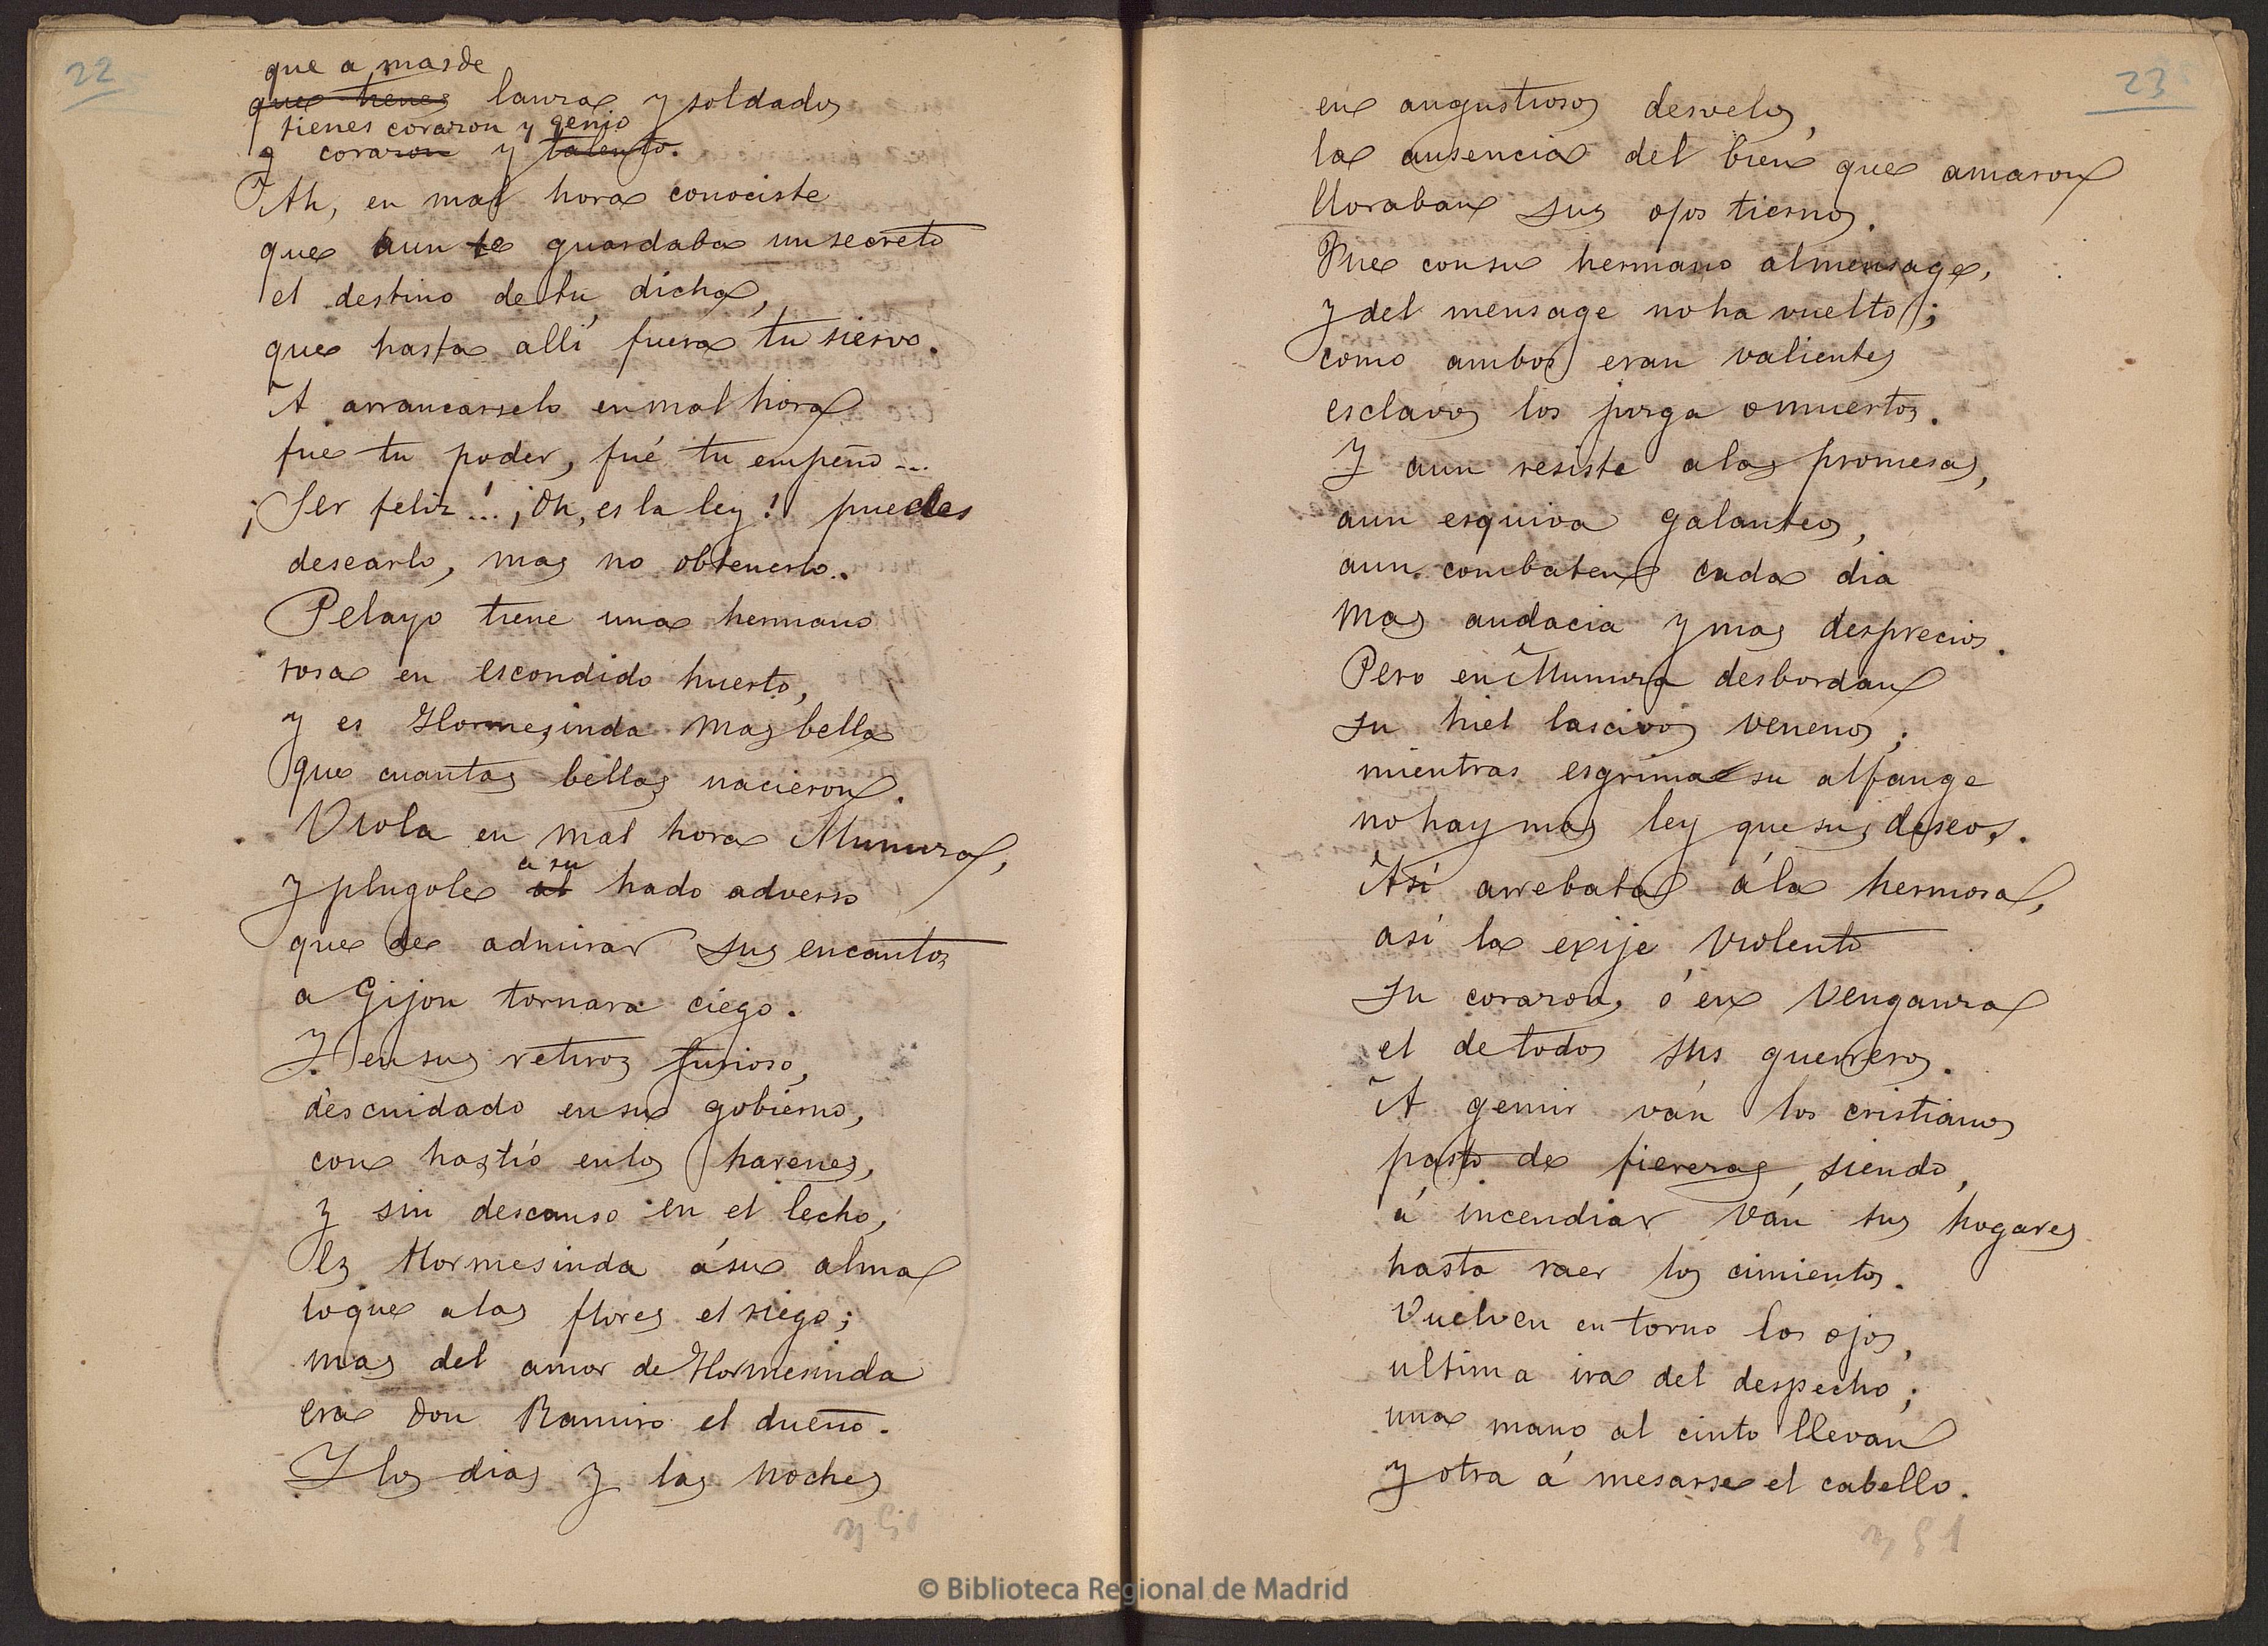 22
que a mas de
que tienes lanzas y soldados
tienes corazon y genio
y corazon y talento.
Ah, en mal hora conociste
que aun te guardaba un secreto
el destino de tu dicha,
que hasta allí fuera tu siervo.
A arrancarselo en mal hora
fue tu poder, fué tu empeño...
¡Ser feliz!.. ¡Oh, es la ley! puedes
desearlo, mas no obtenerlo.
Pelayo tiene una hermana
rosa en escondido huerto,
y es Hormesinda mas bella
que cuantas bellas nacieron.
Viola en mal hora Munuza,
a su
y plugole al hado adverso
que de admirar sus encantos
a Gijon tornara ciego.
Y en sus retiros furioso,
descuidado en su gobierno,
con hastío en los harenes,
y sin descanso en el lecho,
es Hormesinda á su alma
lo que a las flores el riego;
mas del amor de Hormesinda
era Don Ramiro el dueño.
Y los dias y las noches
23
en angustiosos desvelos,
la ausencia del bien que amaron
lloraban sus ojos tiernos.
Fue con su hermano al mensage,
y del mensage no ha vuelto;
como ambos eran valientes
esclavos los juzga o muertos.
Y aun resiste a las promesas,
aun esquiva galanteos,
aun combaten cada dia
mas audacia y mas desprecios.
Pero en Munuza desbordan
su hiel lascivos venenos;
mientras esgrima su alfange
no hay mas ley que sus deseos.
Así arrebata á la hermosa,
así la exije violento
su corazon, ó en venganza
el de todos sus guerreros.
A gemir ván los cristianos
pasto de fierezas siendo,
á incendiar ván sus hogares
hasta raer los cimientos.
Vuelven en torno los ojos,
ultima ira del despecho;
una mano al cinto llevan
y otra á mesarse el cabello.
© Biblioteca Regional de Madrid